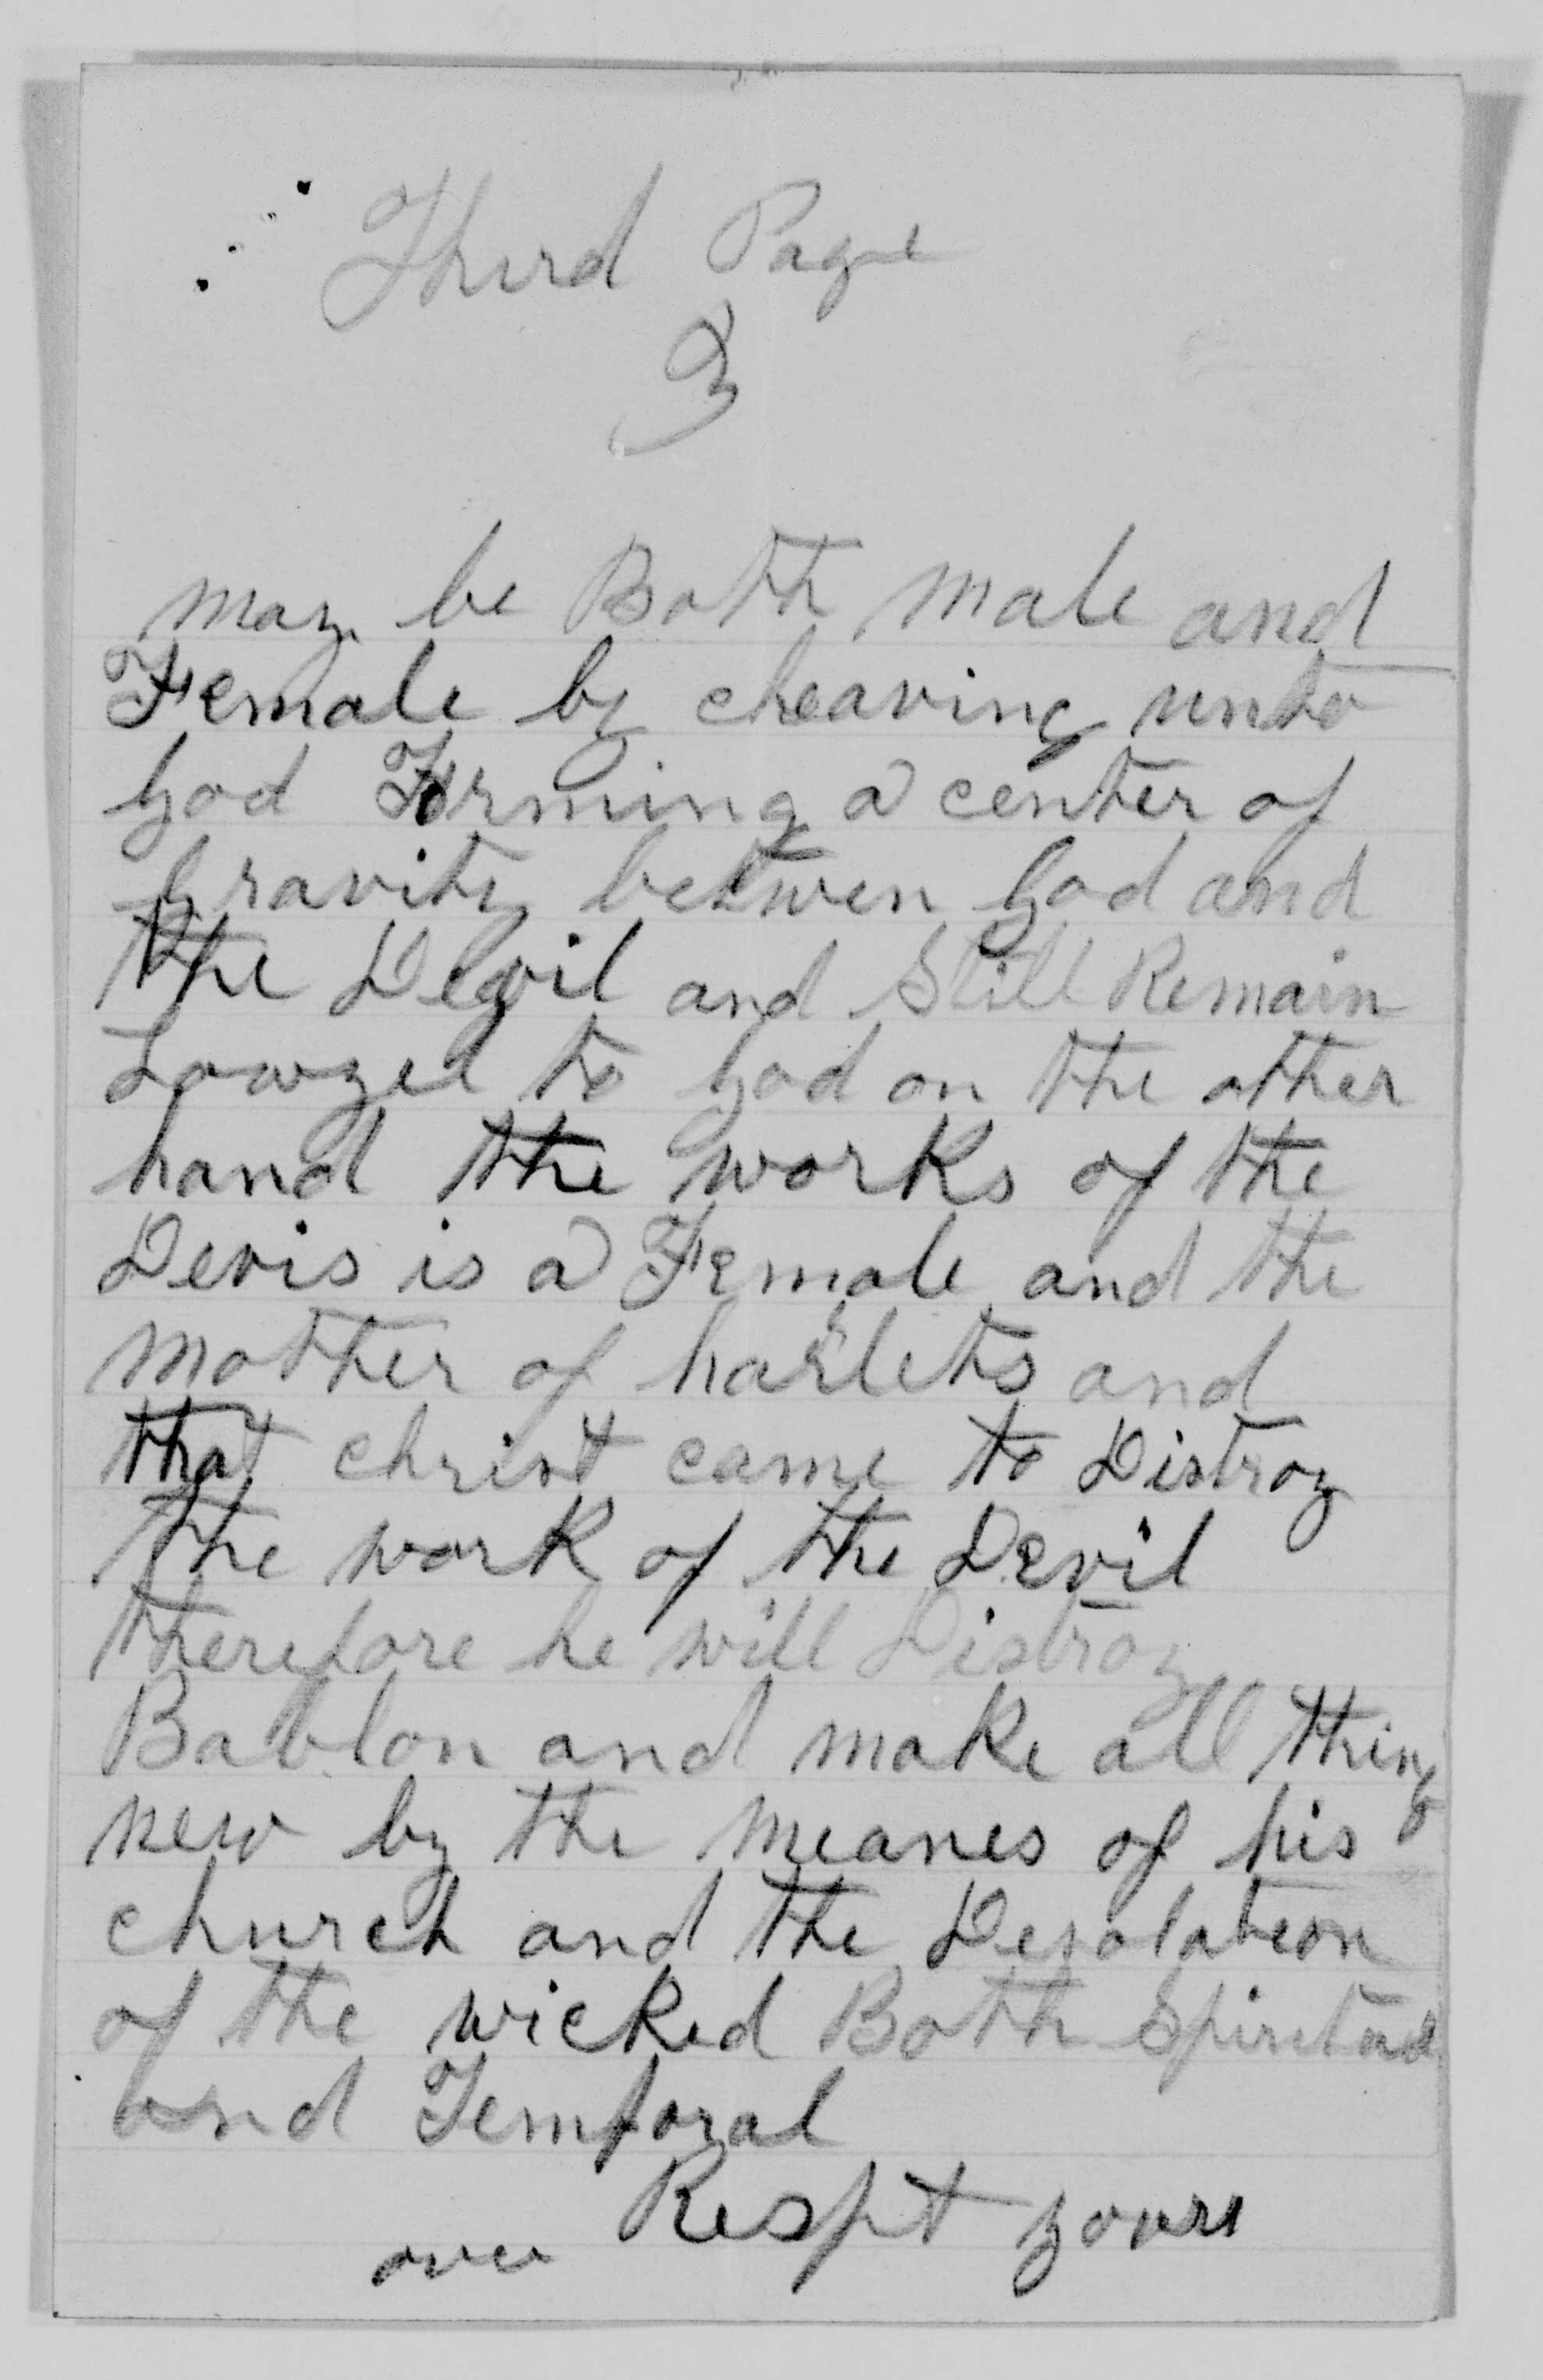 Third Page
3
may be Both male and
Female by cleaving unto
God Forming a center of
Gravity betwen God and
the Devil and Still Remain
Lowyel to God on the other
hand the works of the
Devis is a Female and the
mother of harlets and
that christ came to Distroy
the work of the Devil
therefore he will Distroy
Bablon and make all things
new by the meanes of his
church and the Desolation
of the wicked Both Spiritual
and Temporal
Respt yours
over